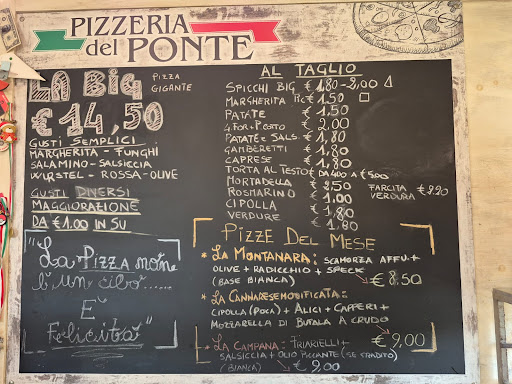 PIZZERIA
del PONTE
LA BIG PIZZA
GIGANTE
€ 14,50
GUSTI SEMPLICI
MARGHERITA - FUNGHI
SALAMINO - SALSICCIA
WURSTEL - ROSSA - OLIVE
GUSTI DIVERSI
MAGGIORAZIONE
DA € 1.00 IN SU
"La PIZZA non è
È
Felicità"
AL TAGLIO
SPICCHI BIG € 1,80 - 2,00
MARGHERITA € 1,50
PATATE € 1,50
4 FOR. PESTO € 2,00
PATATE SALS € 1,80
GAMBERETTI € 1,80
CAPRESE € 1,80
TORTA AL TESTO DA € 4,00 A € 5,00
MORTADELLA € 2,50
ROSMARINO € 1,00
CIPOLLA € 1,80
VERDURE € 1,80
FARCITA € 2,20
VERDURA
PIZZE DEL MESE
* LA MONTANARA: SCAMORZA AFFU. +
OLIVE + RADICCHIO + SPECK
(BASE BIANCA) € 8,50
* LA CANNARESE MODIFICATA:
CIPOLLA (POCA) + ALICI + CAPPERI +
MOZZARELLA DI BUFALA A CRUDO
€ 9,00
* LA CAMPANA: FRIARIELLI +
SALSICCIA + OLIO PICCANTE (SE GRADITO)
(BIANCA) € 9,00